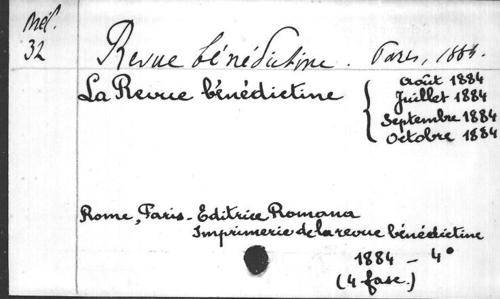 Mél.
32
Revue bénédictine. Paris, 1884.
La Revue bénédictine
Août 1884
Juillet 1884
Septembre 1884
Octobre 1884
Rome, Paris - Editrice Romana
Imprimerie de la revue bénédictine
1884 - 4°
(4 fasc.)